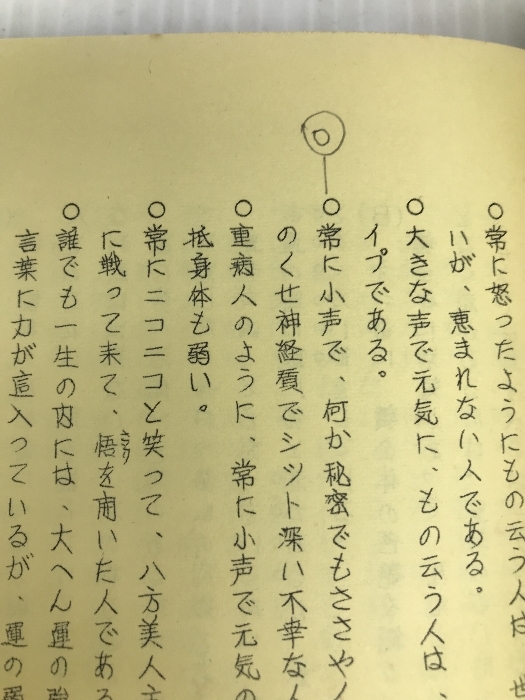 ○常に怒ったようにもの云う人は、世
いが、恵まれない人である。
○大きな声で元気に、もの云う人は、
イプである。
○常に小声で、何か秘密でもささやく
のくせ神経質でシット深い不幸な人
○重病人のように、常に小声で元気の
抵身体も弱い。
○常にニコニコと笑って、八方美人
に戦って来て、悟さとりを開いた人である
○誰でも一生の内には、大へん運の強
言葉に力が這入っているが、運の弱